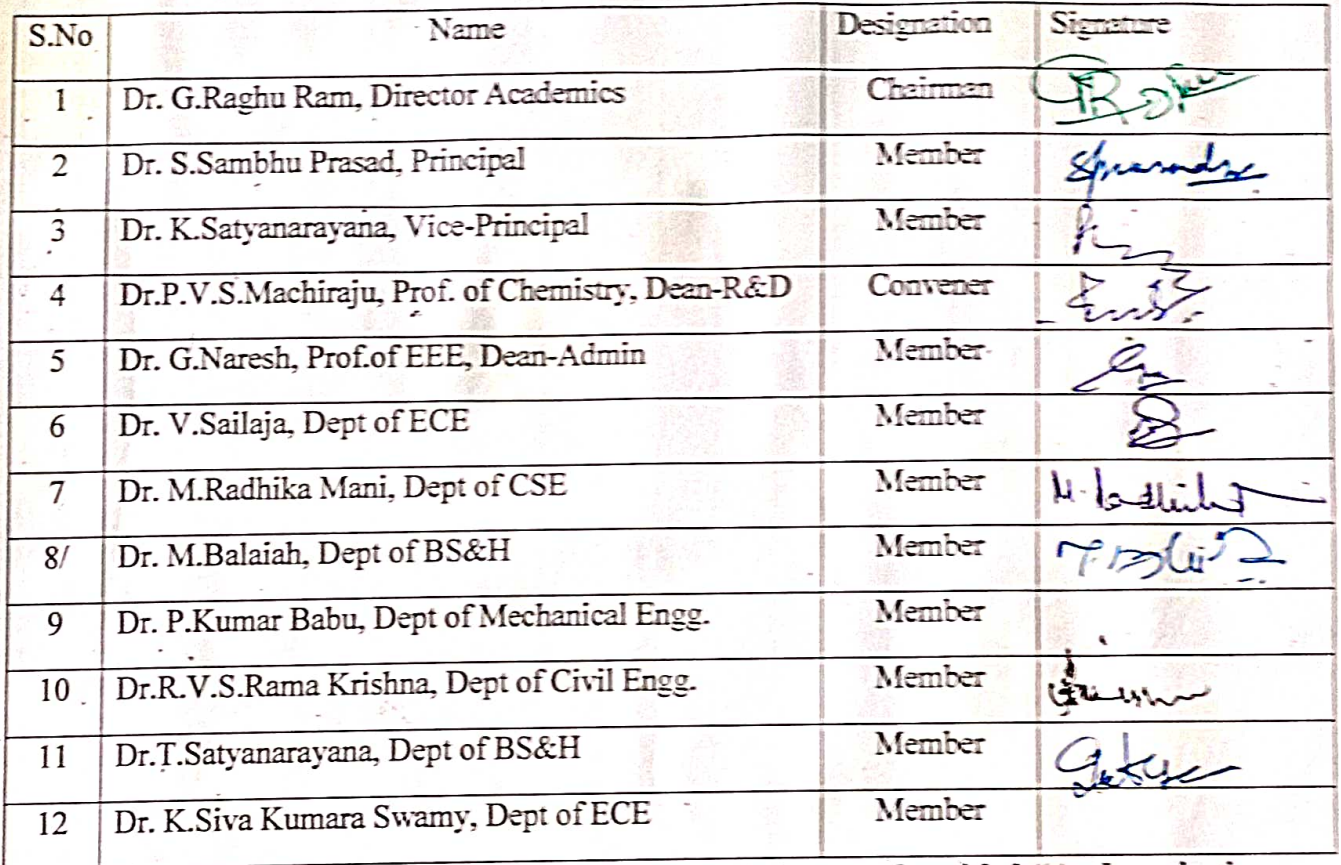 S.No Name Designation Signature
1 Dr. G.Raghu Ram, Director Academics Chairman
2 Dr. S.Sambhu Prasad, Principal Member
3 Dr. K.Satyanarayana, Vice-Principal Member
4 Dr.P.V.S.Machiraju, Prof. of Chemistry, Dean-R&D Convener
5 Dr. G.Naresh, Prof.of EEE, Dean-Admin Member
6 Dr. V.Sailaja, Dept of ECE Member
7 Dr. M.Radhika Mani, Dept of CSE Member
8/ Dr. M.Balaiah, Dept of BS&H Member
9 Dr. P.Kumar Babu, Dept of Mechanical Engg. Member
10 Dr.R.V.S.Rama Krishna, Dept of Civil Engg. Member
11 Dr.T.Satyanarayana, Dept of BS&H Member
12 Dr. K.Siva Kumara Swamy, Dept of ECE Member